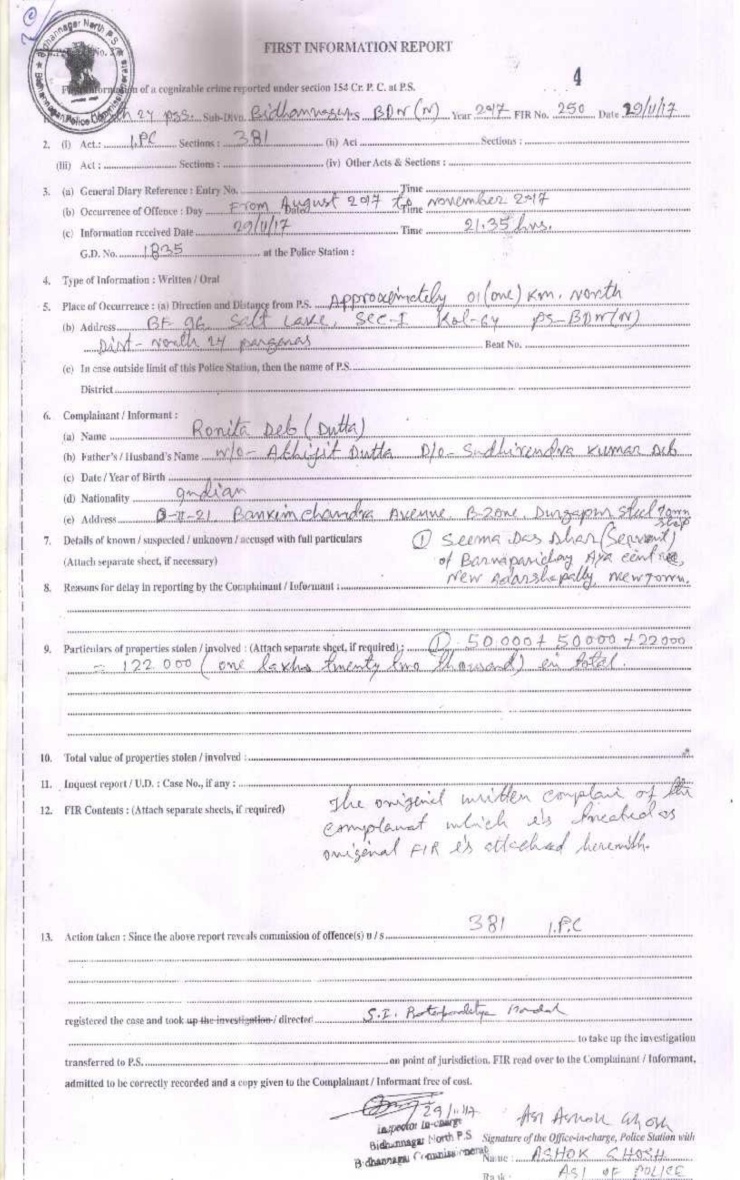 4
FIRST INFORMATION REPORT
Bidhannagar North P.S.
of a cognizable crime reported under section 154 Cr. P. C. at P.S.
24 pss. Sub-Divn. Bidhannagar P.S. BDN (N) Year 2017 FIR No. 250 Date 29/11/17
2. (i) Act.: I.PC Sections : 381 (ii) Act Sections :
(iii) Act : Sections : (iv) Other Acts & Sections :
3. (a) General Diary Reference : Entry No. Time
(b) Occurrence of Offence : Day From August 2017 to November 2017 Time
(c) Information received Date 29/11/17 Time 21:35 hrs.
G.D. No. 1835 at the Police Station :
4. Type of Information : Written / Oral
5. Place of Occurrence : (a) Direction and Distance from P.S. Approximately 01 (one) Km. North
(b) Address BF 96 Salt Lake, Sec-I Kol-64 PS-BDN(N)
Dist- North 24 parganas Beat No.
(c) In case outside limit of this Police Station, then the name of P.S.
District
6. Complainant / Informant :
(a) Name Ronita Deb (Dutta)
(b) Father's / Husband's Name W/o- Abhijit Dutta D/o- Sudhirendra Kumar Deb
(c) Date / Year of Birth
(d) Nationality Indian
(e) Address D-II-21, Bankim chandra Avenue, B-Zone, Durgapur Steel Town
7. Details of known / suspected / unknown / accused with full particulars ① Seema Das Dhar (Servant)
(Attach separate sheet, if necessary) of Barnaparichay Aya centre,
New Adarshapally, Newtown.
8. Reasons for delay in reporting by the Complainant / Informant :
9. Particulars of properties stolen / involved : (Attach separate sheet, if required) : ① 50.000 + 50000 + 22000
= 122000 (one lakhs twenty two thousand) in total.
10. Total value of properties stolen / involved :
11. Inquest report / U.D. : Case No., if any :
12. FIR Contents : (Attach separate sheets, if required) The original written complain of the
complanat which is treated as
original FIR is attached herewith.
13. Action taken : Since the above report reveals commission of offence(s) u / s 381 I.P.C
registered the case and took up the investigation / directed S.I. Mondal
to take up the investigation
transferred to P.S. on point of jurisdiction. FIR read over to the Complainant / Informant,
admitted to be correctly recorded and a copy given to the Complainant / Informant free of cost.
29/11/17
Inspector In-charge
Bidhannagar North P.S
Bidhannagar Commissionerate
ASI Ashok Ghosh
Signature of the Office-in-charge, Police Station with
Name : ASHOK GHOSH
Rank : ASI OF POLICE